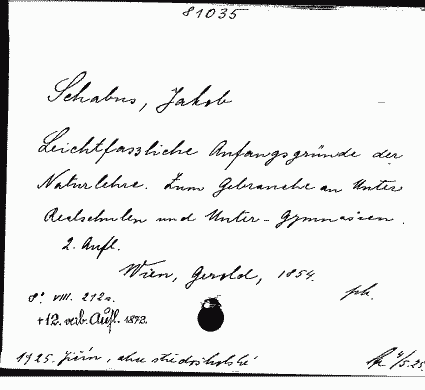 81035
Schabus, Jakob
Leichtfaszliche Anfangsgründe der
Naturlehre. Zum Gebrauche an Unter
Realschulen und Unter-Gymnasien.
2. Aufl.
Wien, Gerold, 1854.
8° VIII. 212 s.
+12. verb. Aufl. 1872.
1925. Jičín, akc
4/5.25